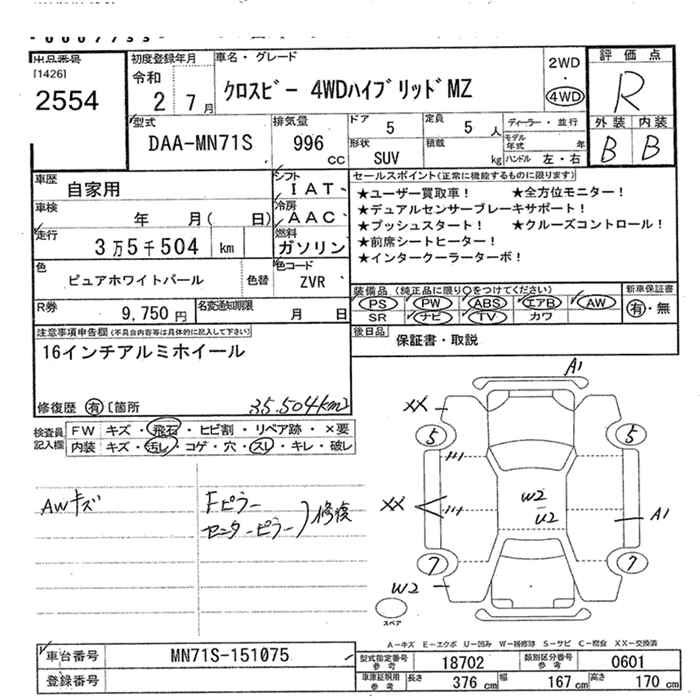 出品番号
[1426]
2554
初度登録年月
令和
2 7月
車名・グレード
クロスビー 4WDハイブリッドMZ
2WD
・
4WD
評価点
R
型式
DAA-MN71S
排気量
996
CC
ドア
5
定員
5 人
形状
SUV
積載
kg
ディーラー・並行
モデル年式 年
ハンドル 左・右
外装 内装
B B
車歴
自家用
シフト
IAT
車検
年 月( 日)
冷房
AAC
走行
3万5千504 km
燃料
ガソリン
色
ピュアホワイトパール
色替
色コード
ZVR
R券
9,750円
名変通知期限
月 日
セールスポイント(正常に機能するものに限ります)
★ユーザー買取車! ★全方位モニター!
★デュアルセンサーブレーキサポート!
★プッシュスタート! ★クルーズコントロール!
★前席シートヒーター!
★インタークーラーターボ!
装備品(純正品に限り○をつけてください)
PS PW ABS エアB AW
SR ナビ TV カワ
新車保証書
有・無
後日品
保証書・取説
注意事項申告欄(不具合内容等は具体的に記入して下さい)
16インチアルミホイール
35.504km
修復歴 有 [箇所
検査員記入欄
FW キズ・飛石・ヒビ割・リペア跡・×要
内装 キズ・汚レ・コゲ・穴・スレ・キレ・破レ
AWキズ
Fピラー
センターピラー
修復
A1
XX
5
5
XX
W2
U2
A1
7
7
W2
スペア
A-キズ E-エクボ U-凹み W-補修跡 S-サビ C-腐食 XX-交換済
車台番号
MN71S-151075
登録番号
型式指定番号
参考
18702
類別区分番号
参考
0601
車庫証明用
参考
長さ
376 cm
幅
167 cm
高さ
170 cm